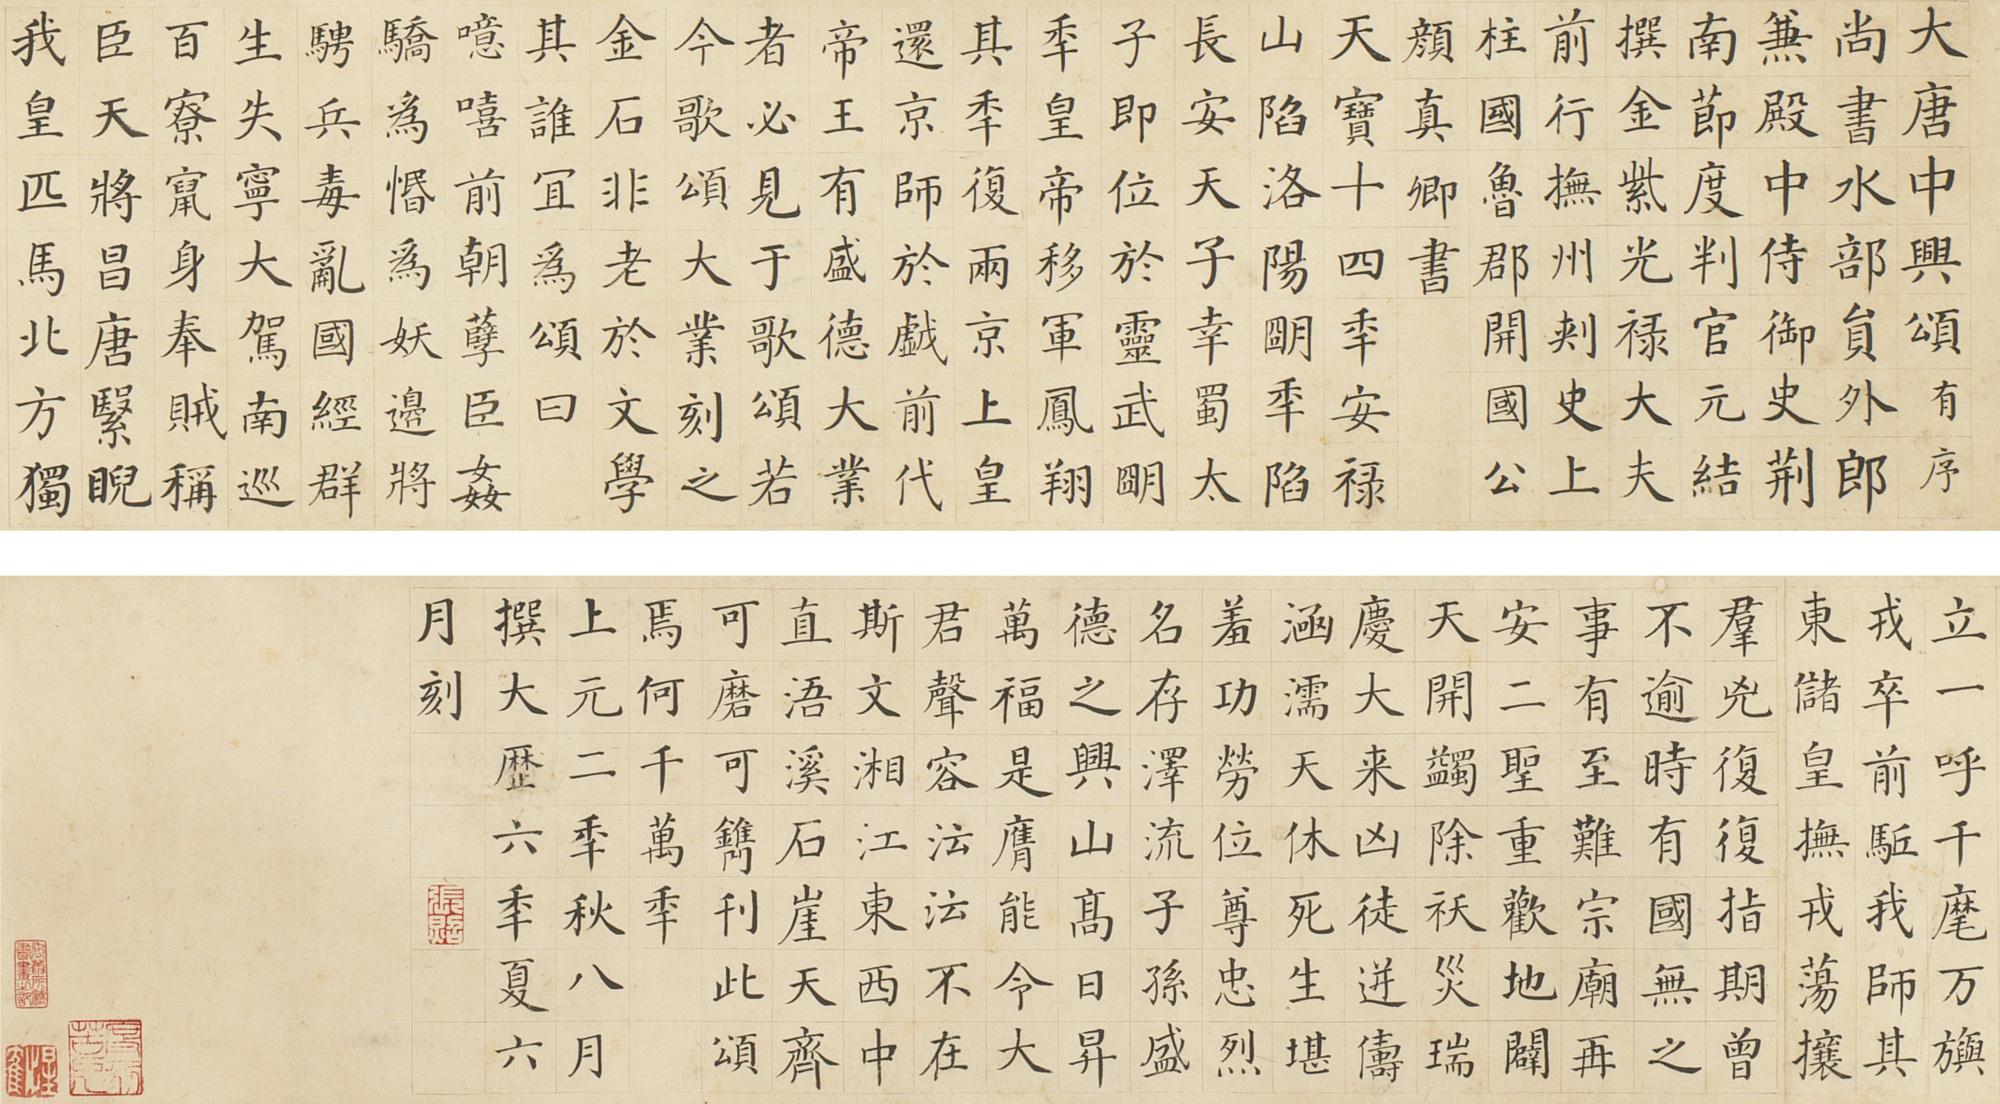 大唐中興頌有序
尚書水部貟外郎
兼殿中侍御史荆
南節度判官元結
撰金紫光禄大夫
前行撫州刾史上
柱國魯郡開國公
顏真卿書
天寶十四秊安禄
山陷洛陽朙秊陷
長安天子幸蜀太
子即位於靈武朙
秊皇帝移軍鳳翔
其秊復兩京上皇
還京師於戱前代
帝王有盛德大業
者必見于歌頌若
今歌頌大業刻之
金石非老於文學
其誰宜爲頌曰
噫嘻前朝孽臣姦
驕為惽爲妖邊將
騁兵毒亂國經群
生失寧大駕南巡
百寮竄身奉賊稱
臣天將昌唐緊睨
我皇匹馬北方獨
立一呼千麾万旟
戎卒前駈我師其
東儲皇撫戎蕩攘
羣兇復復指期曾
不逾時有國無之
事有至難宗廟再
安二聖重歡地闢
天開蠲除祅災瑞
慶大来凶徒迸儔
涵濡天休死生堪
羞功勞位尊忠烈
名存澤流子孫盛
德之興山髙日昇
萬福是膺能令大
君聲容沄沄不在
斯文湘江東西中
直浯溪石崖天齊
可磨可鐫刊此頌
焉何千萬秊
上元二秊秋八月
撰大歷六秊夏六
月刻